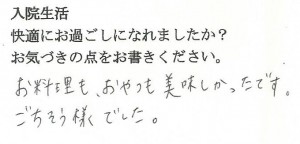 入院生活
快適にお過ごしになれましたか？
お気づきの点をお書きください。
お料理も、おやつも美味しかったです。
ごちそう様でした。